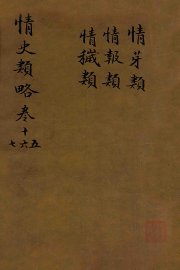 情芽類
情報類
情穢類
情史類略叁十五六七